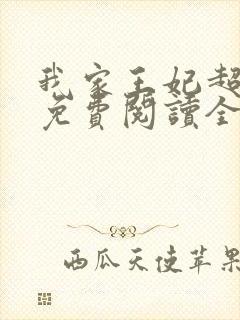 我家王妃超
免費閱讀全
西瓜天使苹果